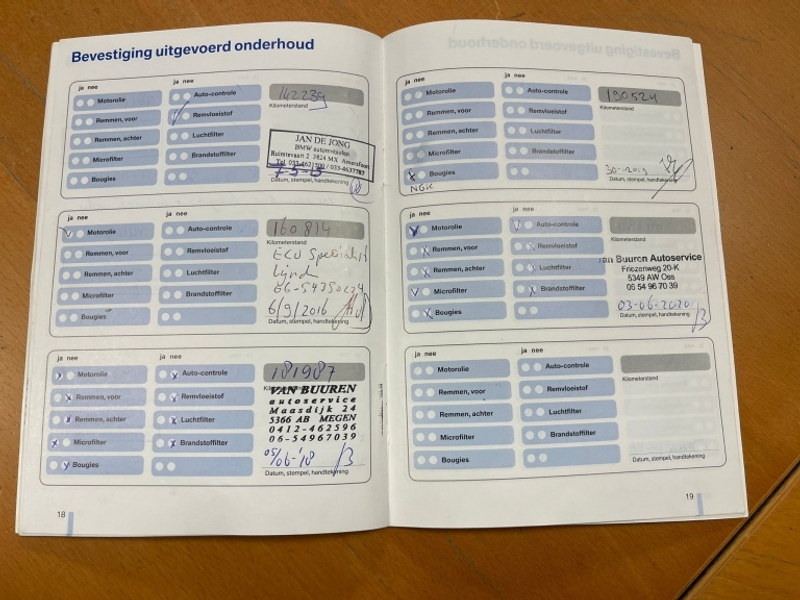 Bevestiging uitgevoerd onderhoud
ja nee
Motorolie
Remmen, voor
Remmen, achter
Microfilter
Bougies
ja nee
Auto-controle
Remvloeistof
Luchtfilter
Brandstoffilter
142239
Kilometerstand
JAN DE JONG
BMW automobielen
Ruimtevaart 2 3824 MX Amersfoort
Datum, stempel, handtekening
ja nee
Motorolie
Remmen, voor
Remmen, achter
Microfilter
Bougies
ja nee
Auto-controle
Remvloeistof
Luchtfilter
Brandstoffilter
160814
Kilometerstand
ECU Specialist
6/9/2016
Datum, stempel, handtekening
ja nee
Motorolie
Remmen, voor
Remmen, achter
Microfilter
Bougies
ja nee
Auto-controle
Remvloeistof
Luchtfilter
Brandstoffilter
181987
VAN BUUREN
autoservice
Maasdijk 24
5366 AB MEGEN
0412-462596
06-54967039
05/06-'18
Datum, stempel, handtekening
18
ja nee
Motorolie
Remmen, voor
Remmen, achter
Microfilter
Bougies
NGK
ja nee
Auto-controle
Remvloeistof
Luchtfilter
Brandstoffilter
190524
Kilometerstand
Datum, stempel, handtekening
ja nee
Motorolie
Remmen, voor
Remmen, achter
Microfilter
Bougies
ja nee
Auto-controle
Remvloeistof
Luchtfilter
Brandstoffilter
Kilometerstand
an Buuren Autoservice
Friezenweg 20-K
5349 AW Oss
06 54 96 70 39
03-06-2020
Datum, stempel, handtekening
ja nee
Motorolie
Remmen, voor
Remmen, achter
Microfilter
Bougies
ja nee
Auto-controle
Remvloeistof
Luchtfilter
Brandstoffilter
Kilometerstand
Datum, stempel, handtekening
19